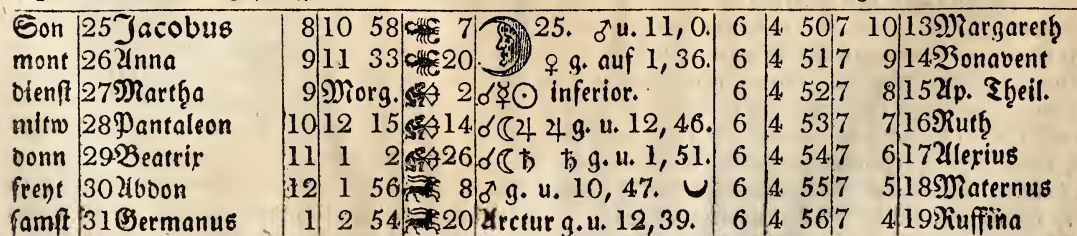 Son 25 Jacobus 8 10 58 ♏ 7 25. ♂ u. 11, 0. 6 4 50 7 10 13 Margareth
mont 26 Anna 9 11 33 ♏ 20 ♀ g. auf 1, 36. 6 4 51 7 9 14 Bonavent
dienst 27 Martha 9 Morg. ♐ 2 ☌☿☉ inferior. 6 4 52 7 8 15 Ap. Theil.
mitw 28 Pantaleon 10 12 15 ♐ 14 ☌☾♃ ♃ g. u. 12, 46. 6 4 53 7 7 16 Ruth
donn 29 Beatrix 11 1 2 ♐ 26 ☌☾♄ ♄ g. u. 1, 51. 6 4 54 7 6 17 Alexius
freyt 30 Abdon 12 1 56 ♑ 8 ♂ g. u. 10, 47. 6 4 55 7 5 18 Maternus
samst 31 Germanus 1 2 54 ♑ 20 Arctur g. u. 12, 39. 6 4 56 7 4 19 Ruffina